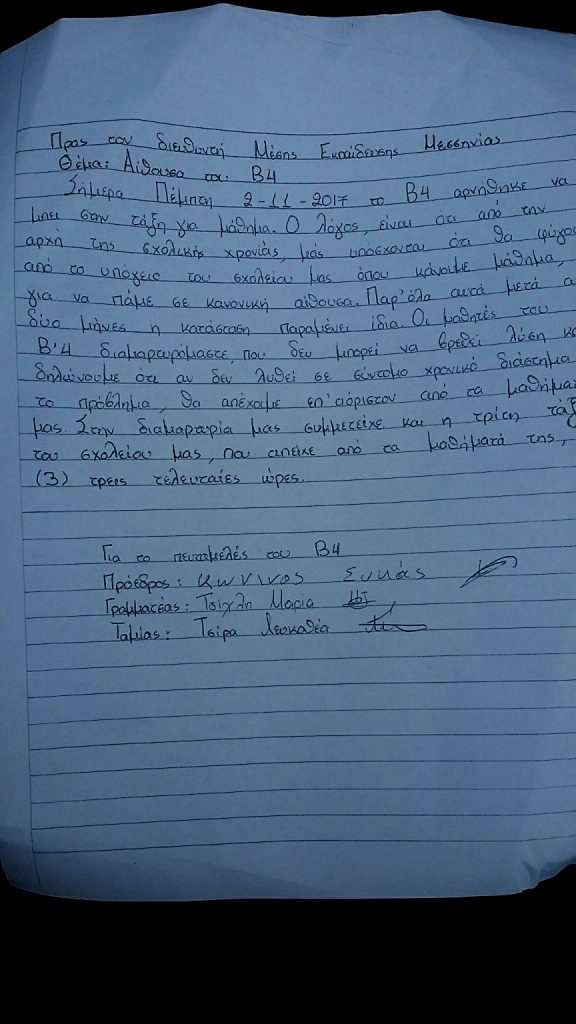 Προς τον διευθυντή Μέσης Εκπαίδευσης Μεσσηνίας
Θέμα: Αίθουσα του Β4
Σήμερα Πέμπτη 2-11-2017 το Β4 αρνήθηκε να
μπει στην τάξη για μάθημα. Ο λόγος, είναι ότι από την
αρχή της σχολικής χρονιάς, μας υπόσχονται ότι θα φύγου
από το υπόγειο του σχολείου μας όπου κάνουμε μάθημα,
για να πάμε σε κανονική αίθουσα. Παρ'όλα αυτά μετά α
δύο μήνες η κατάσταση παραμένει ίδια. Οι μαθητές του
Β'4 διαμαρτυρόμαστε, που δεν μπορεί να βρεθεί λύση κα
δηλώνουμε ότι αν δεν λυθεί σε σύντομο χρονικό διάστημα
το πρόβλημα, θα απέχουμε επ'αόριστον από τα μαθήμα
μας. Στην διαμαρτυρία μας συμμετείχε και η τρίτη τάξ
του σχολείου μας, που απείχε από τα μαθήματά της,
(3) τρεις τελευταίες ώρες.
Για το πενταμελές του Β4
Πρόεδρος: Κων/νος Συκάς
Γραμματέας: Τσίχλη Μαρία
Ταμίας: Τσίρα Λευκοθέα